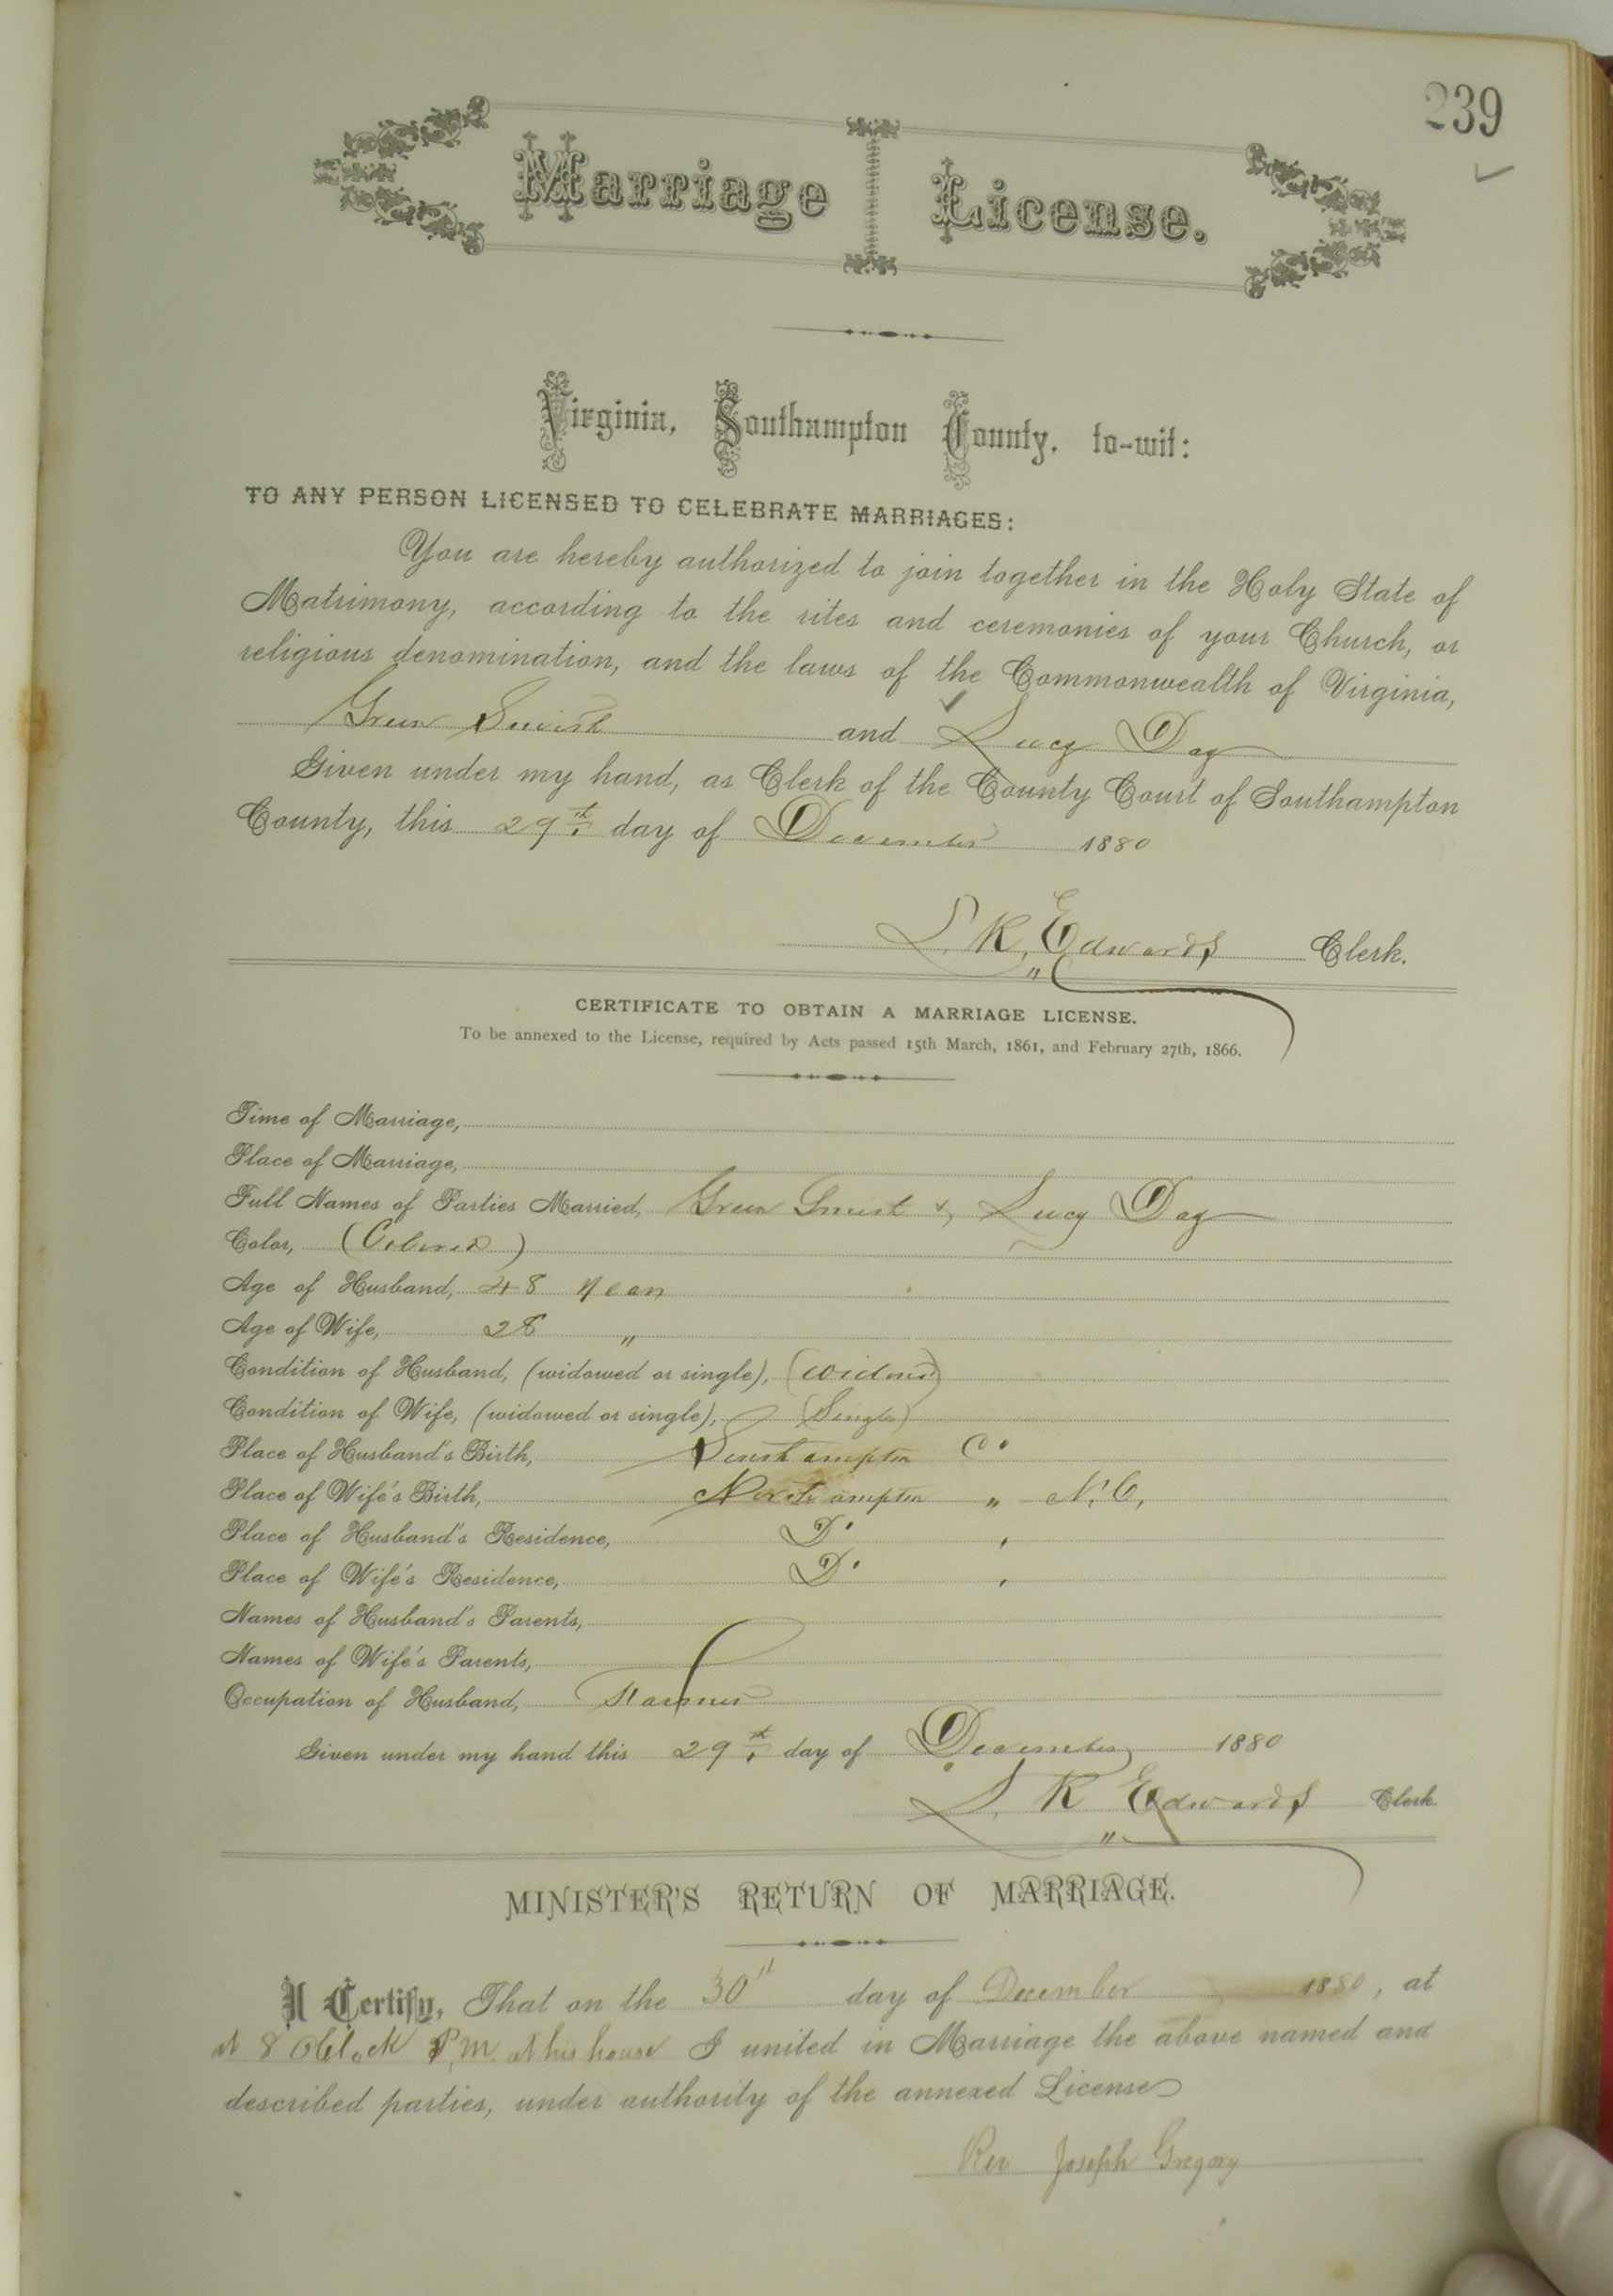 239
Marriage License.
Virginia, Southampton County, to-wit:
TO ANY PERSON LICENSED TO CELEBRATE MARRIAGES:
You are hereby authorized to join together in the Holy State of
Matrimony, according to the rites and ceremonies of your Church, or
religious denomination, and the laws of the Commonwealth of Virginia,
Green and Lucy Day
Given under my hand, as Clerk of the County Court of Southampton
County, this 29th day of December 1880
L. R. Edwards Clerk.
CERTIFICATE TO OBTAIN A MARRIAGE LICENSE.
To be annexed to the License, required by Acts passed 15th March, 1861, and February 27th, 1866.
Time of Marriage,
Place of Marriage,
Full Names of Parties Married, Green & Lucy Day
Color, (Colored)
Age of Husband, 48 years
Age of Wife, 28 "
Condition of Husband, (widowed or single), (widowed)
Condition of Wife, (widowed or single), (Single)
Place of Husband's Birth, Southampton Co
Place of Wife's Birth, Northampton " N.C,
Place of Husband's Residence, Do
Place of Wife's Residence, Do
Names of Husband's Parents,
Names of Wife's Parents,
Occupation of Husband, Farmer
Given under my hand this 29th day of December 1880
L. R Edwards Clerk.
MINISTER'S RETURN OF MARRIAGE.
I Certify, That on the 30" day of December 1880, at
At 8 Oclock P.M. at his house I united in Marriage the above named and
described parties, under authority of the annexed License
Rev Joseph Gregory